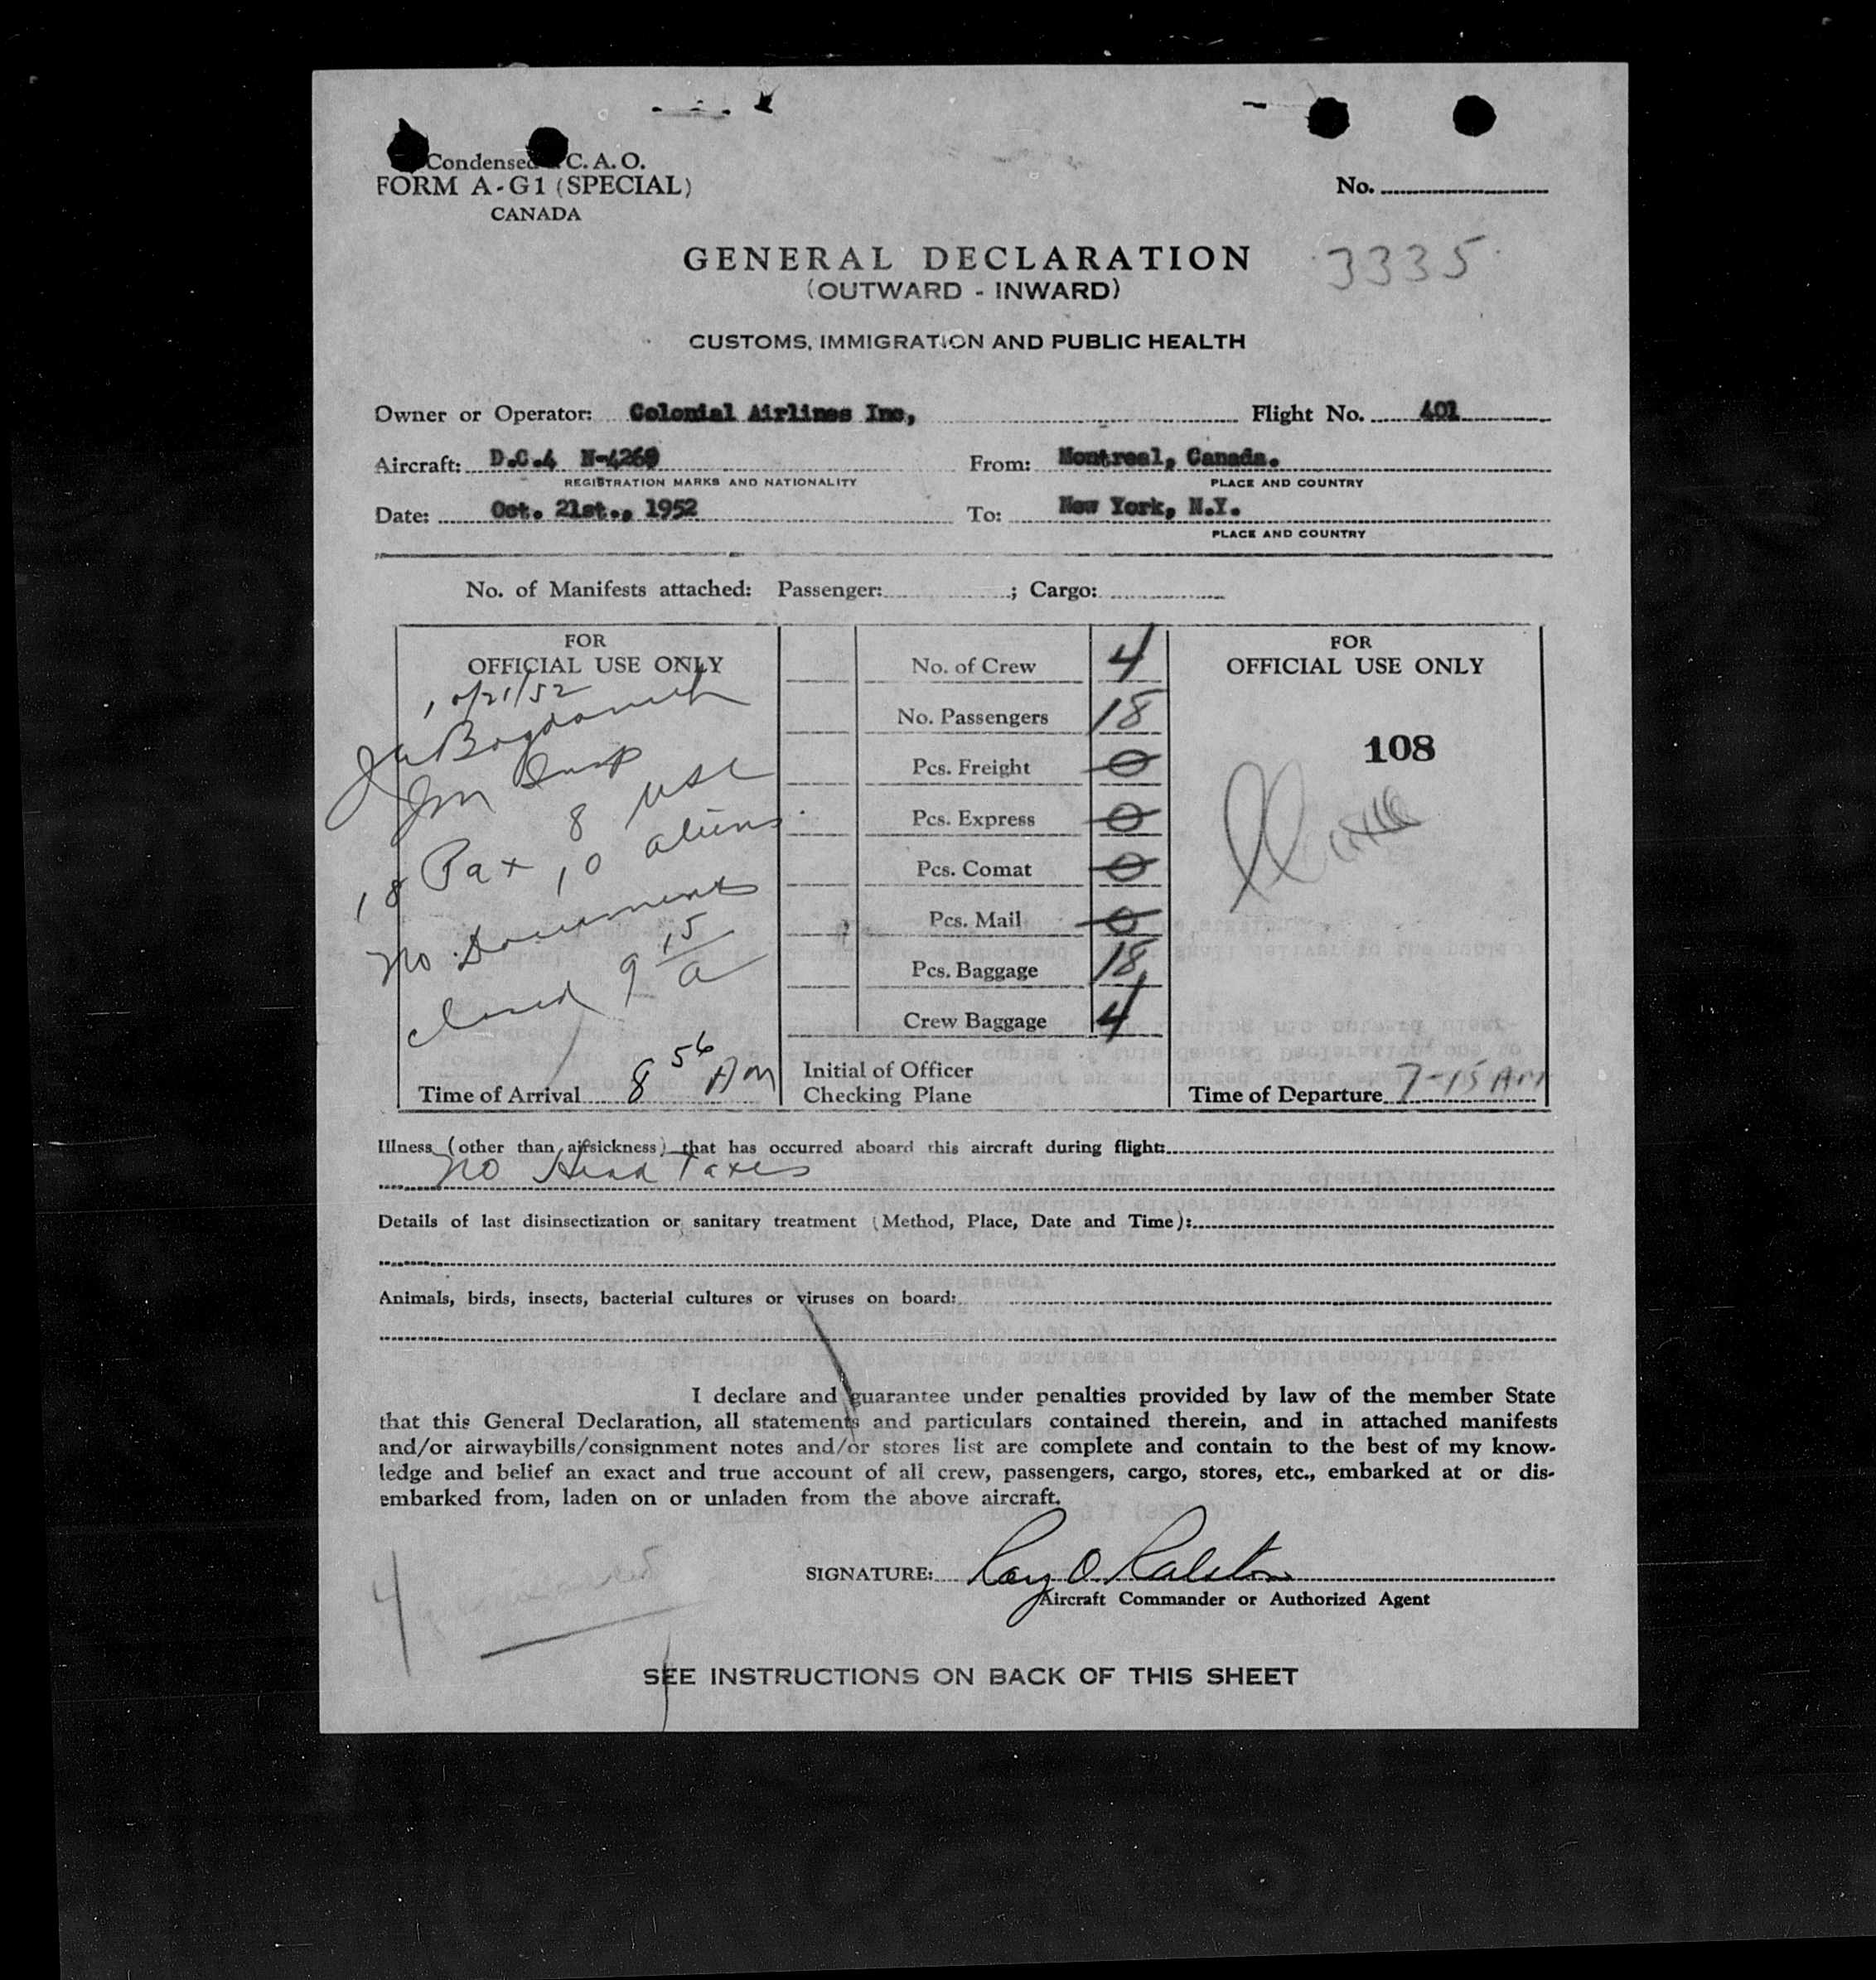 Condensed C. A. O.
FORM A-G1 (SPECIAL)
CANADA
No.
3335
GENERAL DECLARATION
(OUTWARD - INWARD)
CUSTOMS, IMMIGRATION AND PUBLIC HEALTH
Owner or Operator: Colonial Airlines Inc, Flight No. 401
Aircraft: D.C.4 N-4260 From: Montreal, Canada.
REGISTRATION MARKS AND NATIONALITY PLACE AND COUNTRY
Date: Oct. 21st., 1952 To: New York, N.Y.
PLACE AND COUNTRY
No. of Manifests attached: Passenger: ; Cargo:
FOR
OFFICIAL USE ONLY
10/21/52
Bogdanich
Imm Insp
8 USC
18 Pax 10 aliens
No Documents
closed 9 15 a
Time of Arrival 8 56 AM
No. of Crew 4
No. Passengers 18
Pcs. Freight 0
Pcs. Express 0
Pcs. Comat 0
Pcs. Mail 0
Pcs. Baggage 18
Crew Baggage 4
Initial of Officer
Checking Plane
FOR
OFFICIAL USE ONLY
108
Time of Departure 7-15 AM
Illness (other than airsickness) that has occurred aboard this aircraft during flight:
No Head Taxes
Details of last disinsectization or sanitary treatment (Method, Place, Date and Time):
Animals, birds, insects, bacterial cultures or viruses on board:
I declare and guarantee under penalties provided by law of the member State
that this General Declaration, all statements and particulars contained therein, and in attached manifests
and/or airwaybills/consignment notes and/or stores list are complete and contain to the best of my know-
ledge and belief an exact and true account of all crew, passengers, cargo, stores, etc., embarked at or dis-
embarked from, laden on or unladen from the above aircraft.
SIGNATURE: Ray O Ralston
Aircraft Commander or Authorized Agent
4
SEE INSTRUCTIONS ON BACK OF THIS SHEET